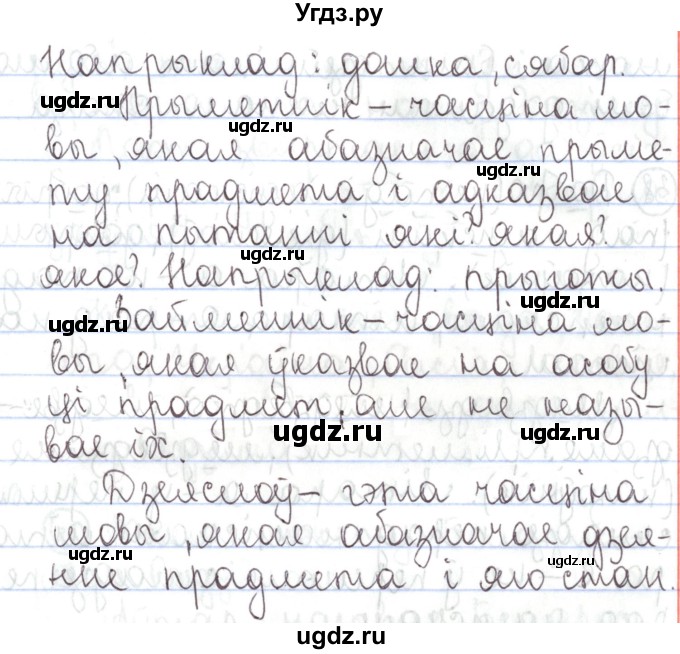 Угдз.ру
Напрыклад: дошка, сябар.
ugdz.ru Прыметнік – часціна мо- ugdz.ru
вы, якая абазначае прыме-
ту прадмета і адказвае
на пытанні які? якая? ugdz.ru
якое? Напрыклад: прыгожы.
ugdz.ru Займеннік – часціна мо- ugdz.ru
вы, якая ўказвае на асобу
ці прадмет, але не назы-
вае іх. ugdz.ru
Дзеяслоў – гэта часціна
мовы, якая абазначае дзея-
ugdz.ru ugdz.ru
нне прадмета і яго стан.
ugdz.ru
ugdz.ru